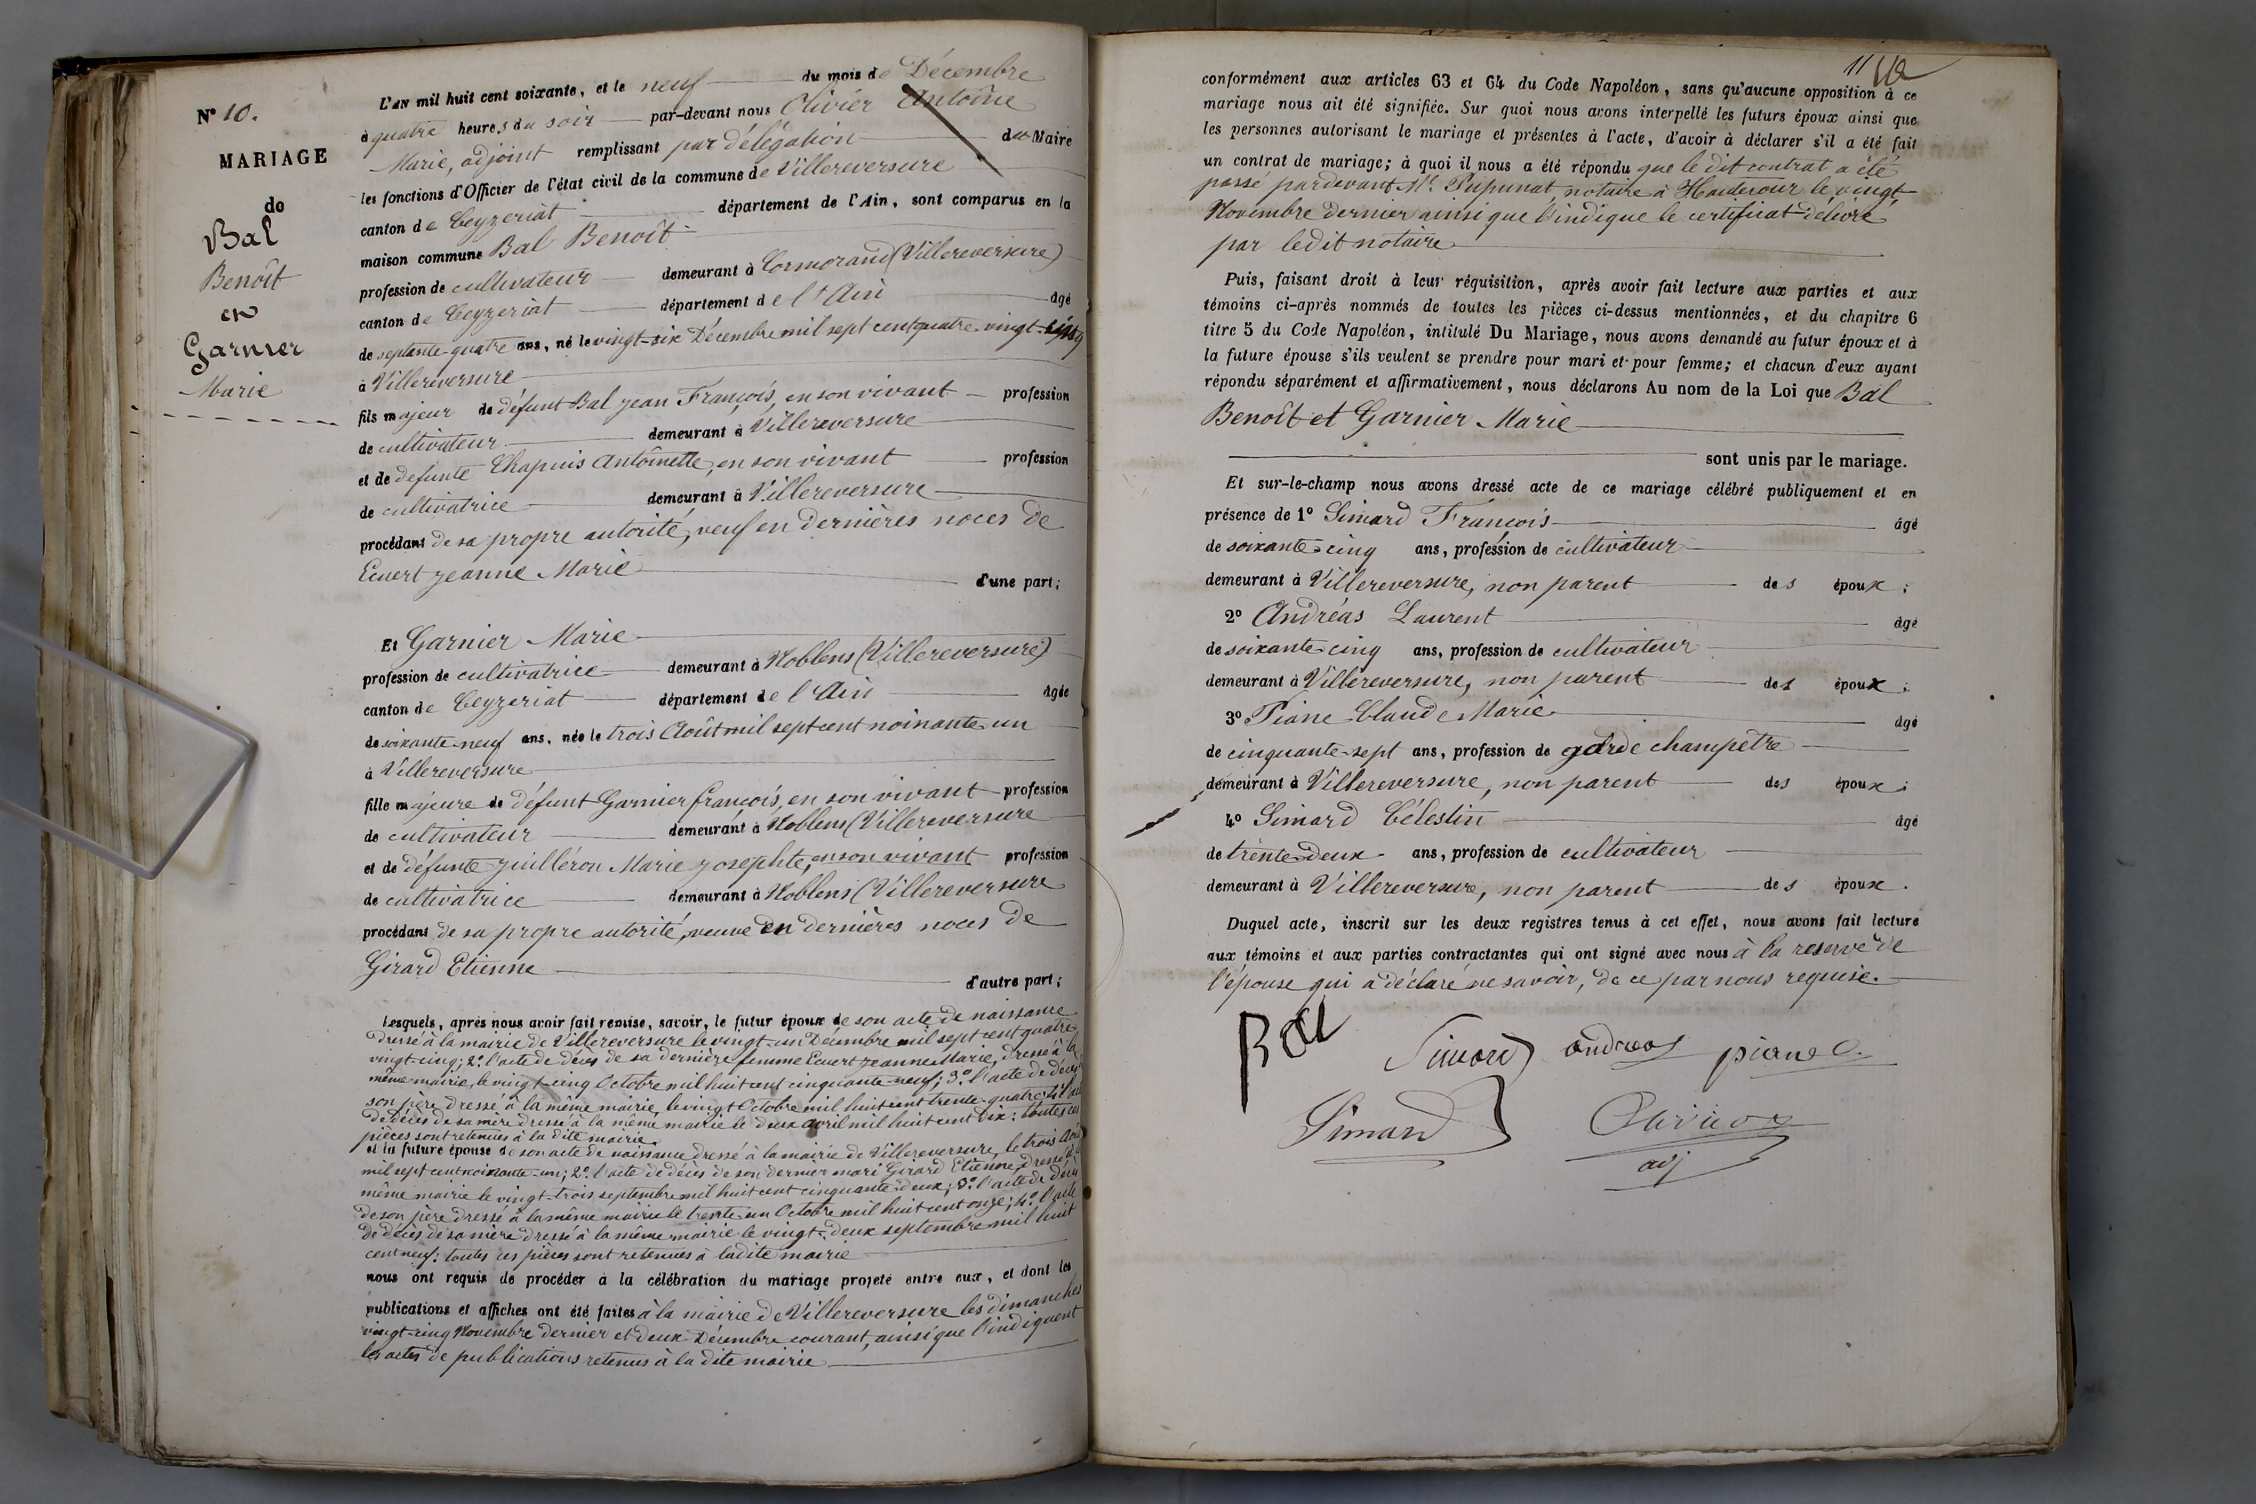 N° 10.
MARIAGE
de
Bal
Benoît
et
Garnier
Marie
L'AN mil huit cent soixante, et le neuf du mois de Décembre
à quatre heures du soir par-devant nous Olivier Antoine
Marie, adjoint remplissant par délégation du Maire
les fonctions d'Officier de l'état civil de la commune de Villereversure
canton de Ceyzeriat département de l'Ain, sont comparus en la
maison commune Bal Benoît
profession de cultivateur demeurant à Cormorand (Villereversure)
canton de Ceyzeriat département de l'Ain âgé
de septante-quatre ans, né le vingt-six Décembre mil sept cent quatre-vingt-cinq
à Villereversure
fils majeur de défunt Bal Jean François, en son vivant profession
de cultivateur demeurant à Villereversure
et de defunte Chapuis Antoinette, en son vivant profession
de cultivatrice demeurant à Villereversure
procédant de sa propre autorité, veuf en dernières noces de
Ecuert Jeanne Marie d'une part;
Et Garnier Marie
profession de cultivatrice demeurant à Noblens (Villereversure)
canton de Ceyzeriat département de l'Ain âgée
de soixante-neuf ans, née le trois Août mil sept cent nonante-un
à Villereversure
fille majeure de défunt Garnier françois, en son vivant profession
de cultivateur demeurant à Noblens (Villereversure
et de défunte Juilléron Marie Josephte, en son vivant profession
de cultivatrice demeurant à Noblens (Villereversure
procédant de sa propre autorité, veuve en dernières noces de
Girard Etienne d'autre part;
Lesquels, après nous avoir fait remise, savoir, le futur époux de son acte de naissance
dressé à la mairie de Villereversure le vingt-un Décembre mil sept cent quatre
vingt-cinq; 2° l'acte de décès de sa dernière femme Ecuert Jeanne Marie, dressé à la
même mairie, le vingt-cinq Octobre mil huit cent cinquante-neuf; 3° l'acte de décès
son père dressé à la même mairie, le vingt Octobre mil huit cent trente-quatre;
de décès de sa mère dressé à la même mairie le deux avril mil huit cent dix: toutes ces
pièces sont retenues à la dite mairie.
et la future épouse de son acte de naissance dressé à la mairie de Villereversure, le trois Août
mil sept cent nonante-un; 2° l'acte de décès de son dernier mari Girard Etienne, dressé à la
même mairie le vingt-trois septembre mil huit cent cinquante-deux; 3° l'acte de décès
de son père dressé à la même mairie le trente-un Octobre mil huit cent onze; 4° l'acte
de décès de sa mère dressé à la même mairie le vingt-deux septembre mil huit
cent neuf: toutes ces pièces sont retenues à ladite mairie
nous ont requis de procéder à la célébration du mariage projeté entre eux, et dont les
publications et affiches ont été faites à la mairie de Villereversure les dimanches
vingt-cinq Novembre dernier et deux Décembre courant, ainsi que l'indiquent
les actes de publications retenus à la dite mairie
11
conformément aux articles 63 et 64 du Code Napoléon, sans qu'aucune opposition à ce
mariage nous ait été signifiée. Sur quoi nous avons interpellé les futurs époux ainsi que
les personnes autorisant le mariage et présentes à l'acte, d'avoir à déclarer s'il a été fait
un contrat de mariage; à quoi il nous a été répondu que le dit contrat a été
passé pardevant Me Pupunat notaire à Hautecour le vingt
Novembre dernier ainsi que l'indique le certificat délivré
par ledit notaire
Puis, faisant droit à leur réquisition, après avoir fait lecture aux parties et aux
témoins ci-après nommés de toutes les pièces ci-dessus mentionnées, et du chapitre 6
titre 5 du Code Napoléon, intitulé Du Mariage, nous avons demandé au futur époux et à
la future épouse s'ils veulent se prendre pour mari et pour femme; et chacun d'eux ayant
répondu séparément et affirmativement, nous déclarons Au nom de la Loi que Bal
Benoît et Garnier Marie
sont unis par le mariage.
Et sur-le-champ nous avons dressé acte de ce mariage célébré publiquement et en
présence de 1° Simard François âgé
de soixante-cinq ans, profession de cultivateur
demeurant à Villereversure, non parent des époux;
2° Andréas Laurent âgé
de soixante-cinq ans, profession de cultivateur
demeurant à Villereversure, non parent des époux;
3° Piane Claude Marie âgé
de cinquante-sept ans, profession de garde champêtre
demeurant à Villereversure, non parent des époux;
4° Simard Célestin âgé
de trente-deux ans, profession de cultivateur
demeurant à Villereversure, non parent des époux.
Duquel acte, inscrit sur les deux registres tenus à cet effet, nous avons fait lecture
aux témoins et aux parties contractantes qui ont signé avec nous à la reserve de
l'épouse qui a déclaré ne savoir, de ce par nous requise.
Bal
Simard andreas piane C.
Simard Olivier
adj